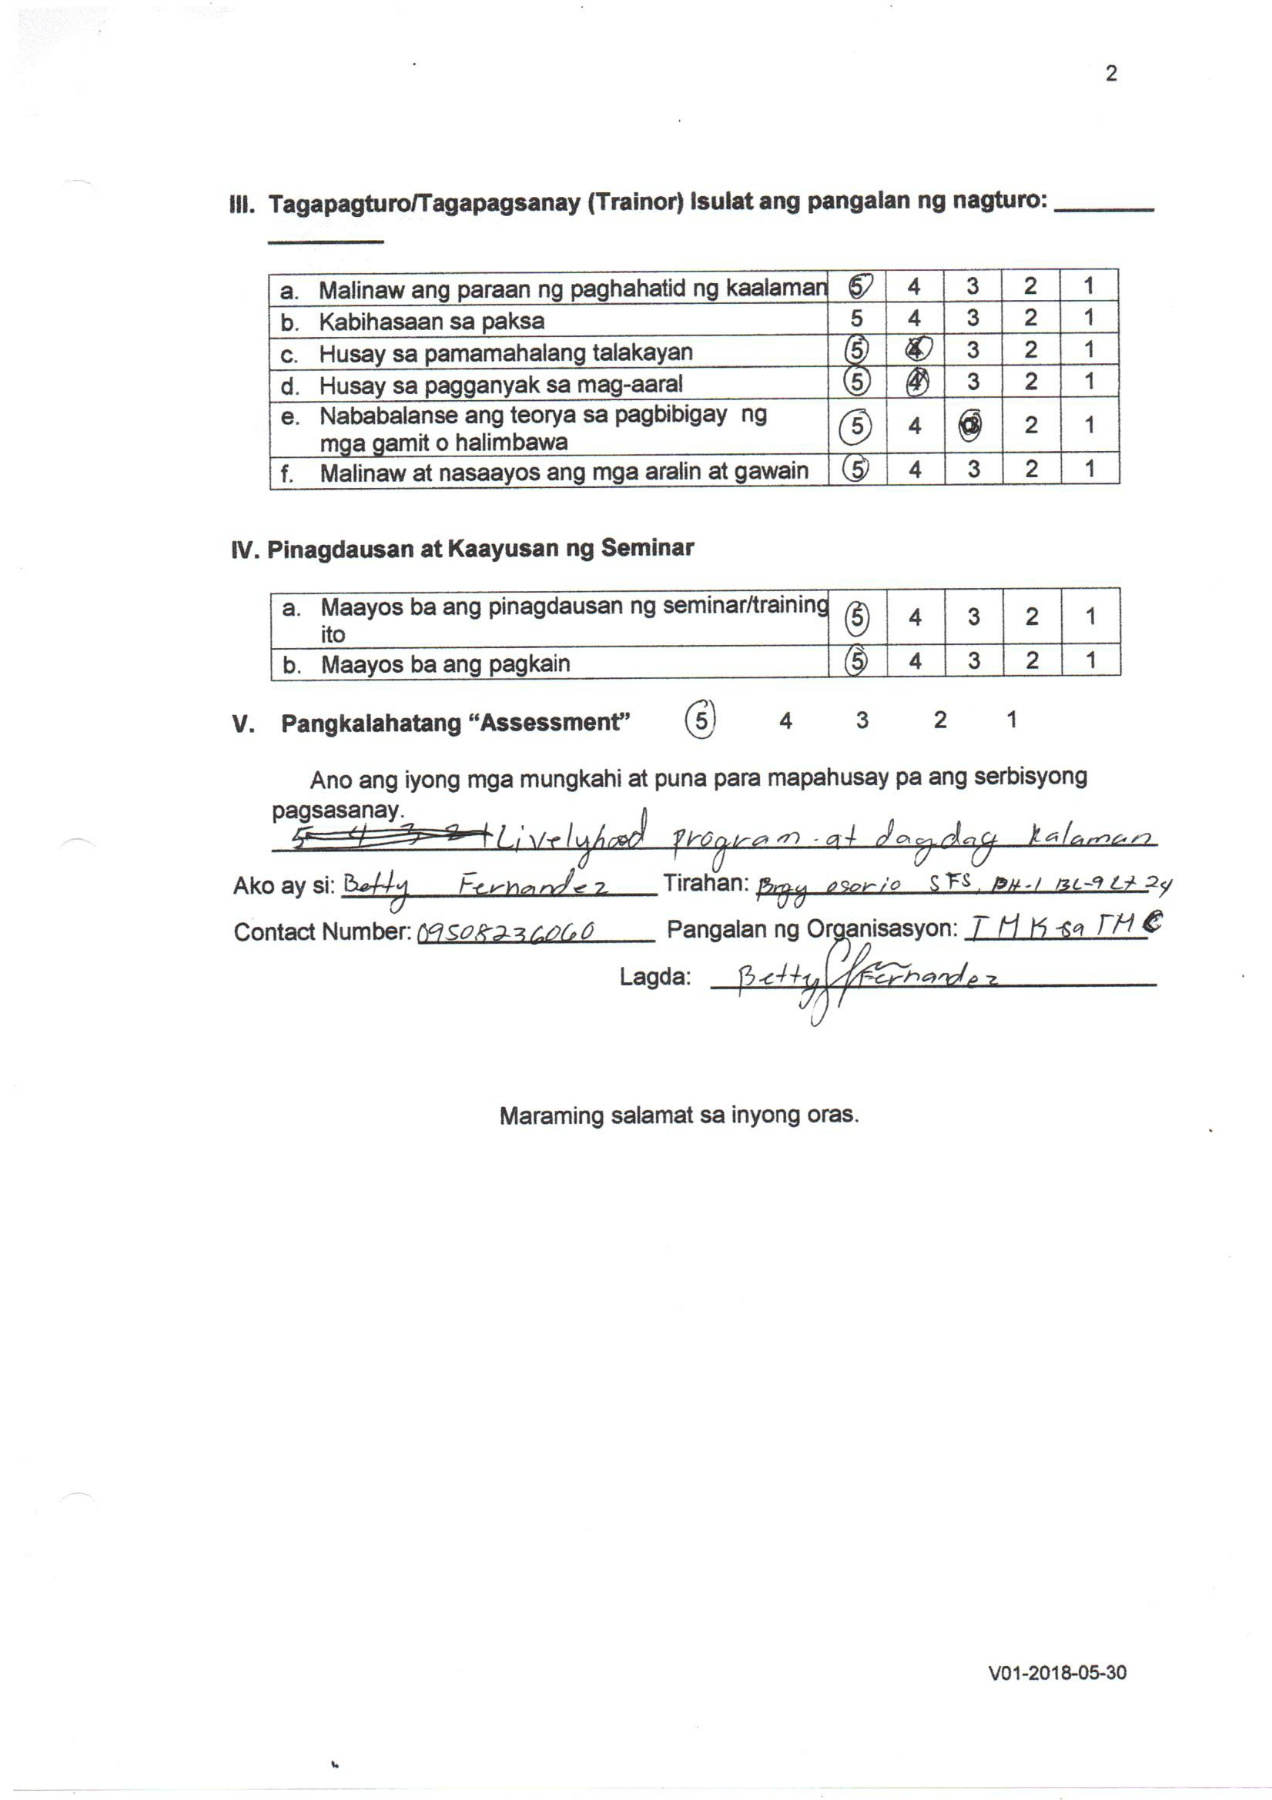 2
III. Tagapagturo/Tagapagsanay (Trainor) Isulat ang pangalan ng nagturo: ________
________
a. Malinaw ang paraan ng paghahatid ng kaalaman 5 4 3 2 1
b. Kabihasaan sa paksa 5 4 3 2 1
c. Husay sa pamamahalang talakayan 5 4 3 2 1
d. Husay sa pagganyak sa mag-aaral 5 4 3 2 1
e. Nababalanse ang teorya sa pagbibigay ng
mga gamit o halimbawa 5 4 3 2 1
f. Malinaw at nasaayos ang mga aralin at gawain 5 4 3 2 1
IV. Pinagdausan at Kaayusan ng Seminar
a. Maayos ba ang pinagdausan ng seminar/training
ito 5 4 3 2 1
b. Maayos ba ang pagkain 5 4 3 2 1
V. Pangkalahatang “Assessment” 5 4 3 2 1
Ano ang iyong mga mungkahi at puna para mapahusay pa ang serbisyong
pagsasanay.
5 4 3 2 1 Livelyhood program at dagdag kalaman
Ako ay si: Betty Fernandez Tirahan: Brgy osorio SFS, PH-1 BL-9 Lt 24
Contact Number: 09508236060 Pangalan ng Organisasyon: TMK sa TMC
Lagda: Betty Fernandez
Maraming salamat sa inyong oras.
V01-2018-05-30